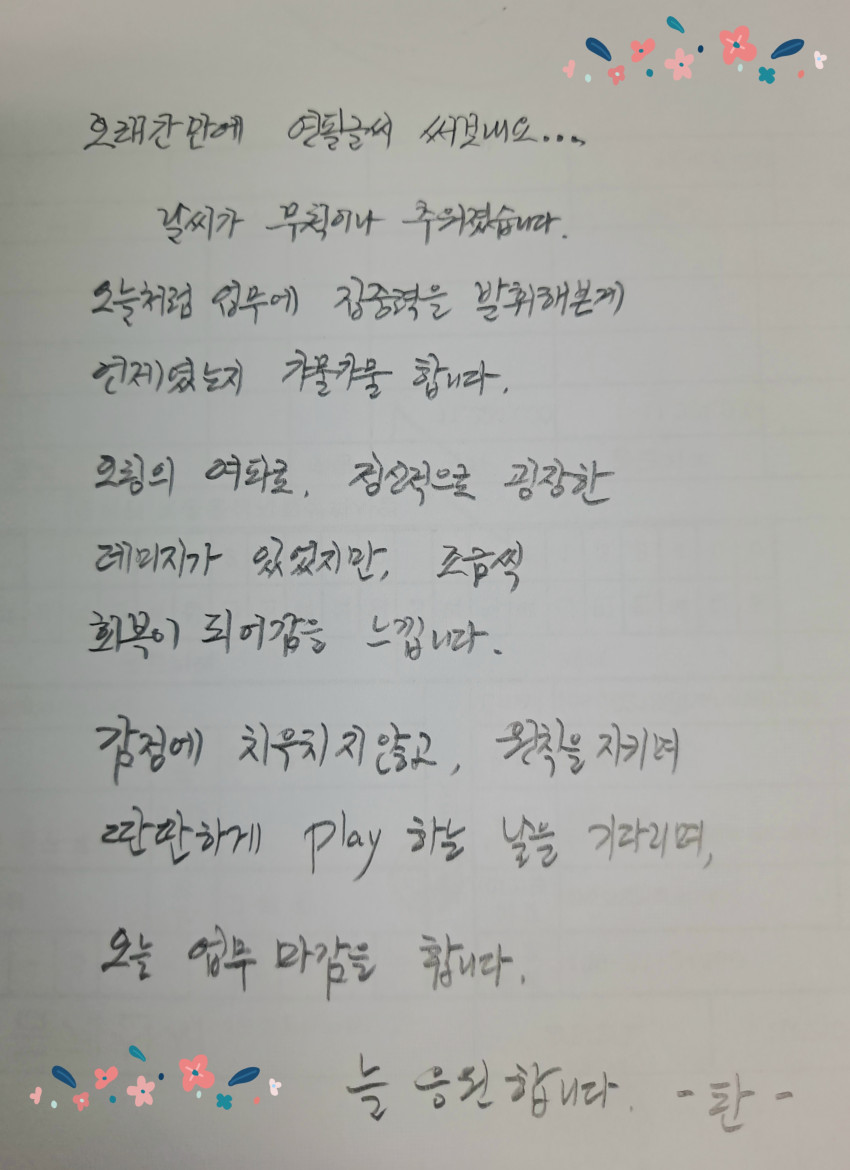 오래간만에 연필글씨 써보네요...
날씨가 무척이나 추워졌습니다.
오늘처럼 업무에 집중력을 발휘해본게
언제였는지 가물가물 합니다.
오링의 여파로, 정신적으로 굉장한
데미지가 있었지만, 조금씩
회복이 되어감을 느낍니다.
감정에 치우치지않고, 원칙을 지키며
딴딴하게 play 하는 날을 기다리며,
오늘 업무 마감을 합니다.
늘 응원합니다. - 탄 -